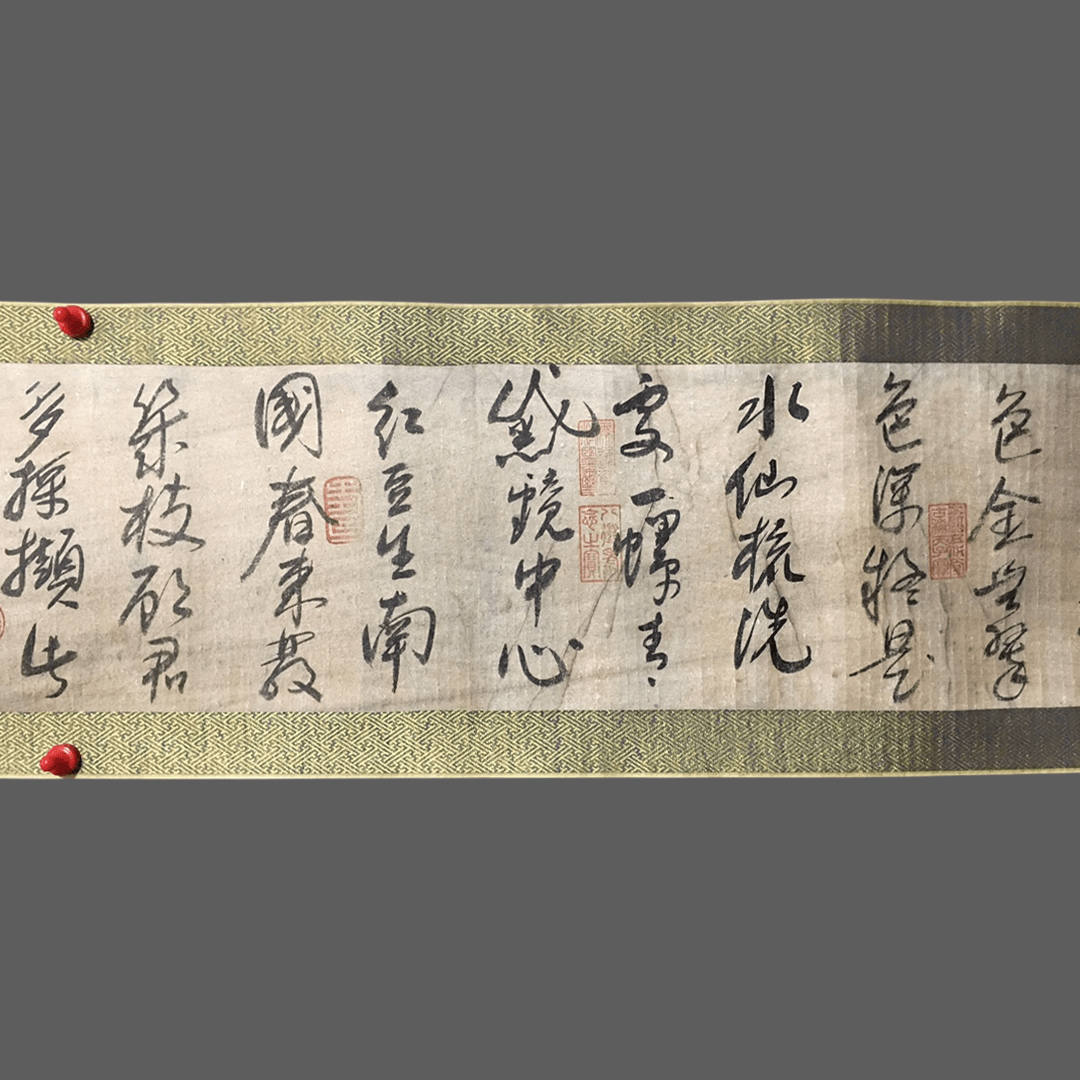 色全無翠
色深疑是
水仙梳洗
處一螺青
黛鏡中心
紅豆生南
國春来發
幾枝願君
多採擷此